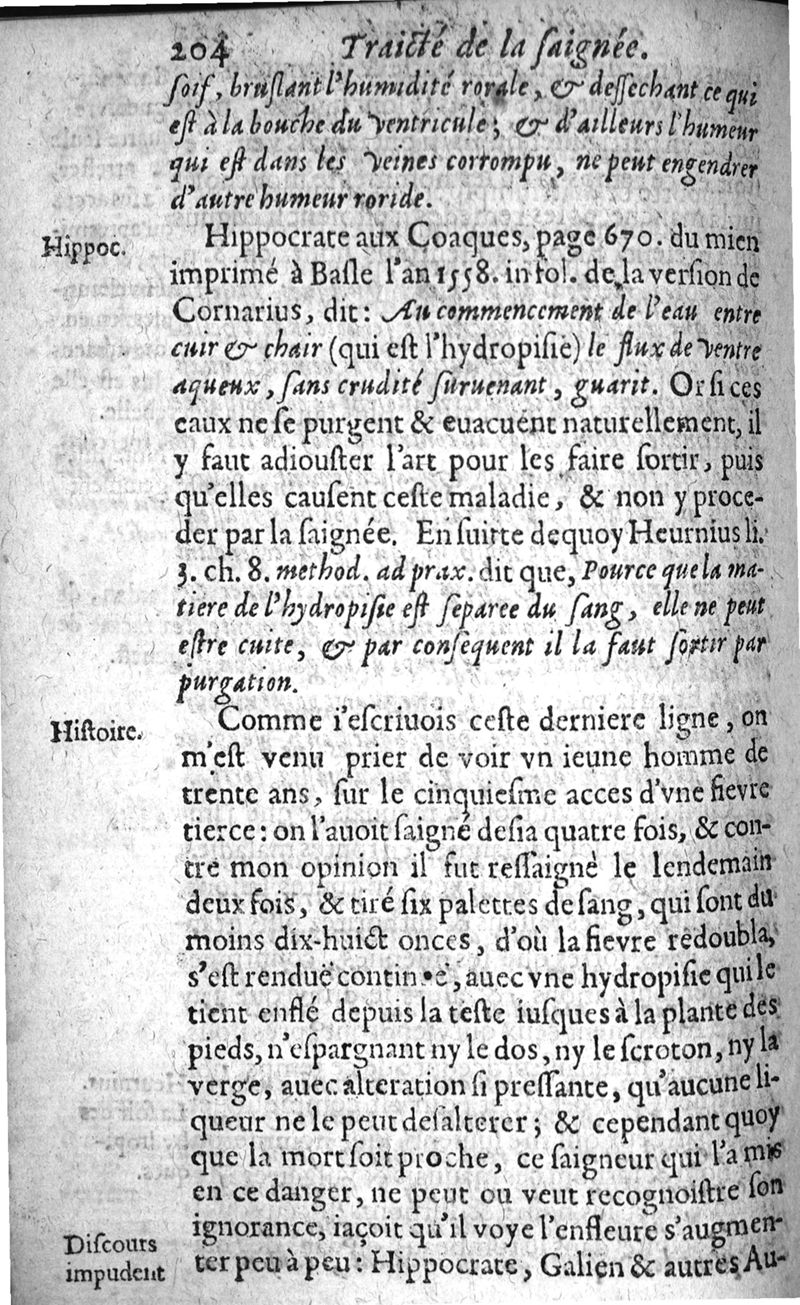 204 Traicté de la ſaignée.
ſoif, bruſlant l'humidité rorale, & deſſechant ce qui
eſt à la bouche du ventricule; & d'ailleurs l'humeur
qui eſt dans les veines corrompu, ne peut engendrer
d'autre humeur roride.
Hippoc.
Hippocrate aux Coaques, page 670. du mien
imprimé à Baſle l'an 1558. in fol. de la verſion de
Cornarius, dit: Au commencement de l'eau entre
cuir & chair (qui eſt l'hydropiſie) le flux de ventre
aqueux, ſans crudité ſuruenant, guarit. Or ſi ces
eaux ne ſe purgent & euacuent naturellement, il
y faut adiouſter l'art pour les faire ſortir, puis
qu'elles cauſent ceſte maladie, & non y proce-
der par la ſaignée. En ſuitte dequoy Heurnius li.
3. ch. 8. method. ad prax. dit que, Pource que la ma-
tiere de l'hydropiſie eſt ſeparee du ſang, elle ne peut
eſtre cuite, & par conſequent il la faut ſortir par
purgation.
Hiſtoire.
Comme i'eſcriuois ceſte derniere ligne, on
m'eſt venu prier de voir vn ieune homme de
trente ans, ſur le cinquieſme acces d'vne fievre
tierce: on l'auoit ſaigné deſia quatre fois, & con-
tre mon opinion il fut reſſaigné le lendemain
deux fois, & tiré ſix palettes de ſang, qui ſont du
moins dix-huict onces, d'où la fievre redoubla,
s'eſt renduë, auec vne hydropiſie qui le
tient enflé depuis la teſte iuſques à la plante des
pieds, n'eſpargnant ny le dos, ny le ſcroton, ny la
verge, auec alteration ſi preſſante, qu'aucune li-
queur ne le peut deſalterer; & cependant quoy
que la mort ſoit proche, ce ſaigneur qui l'a mis
en ce danger, ne peut ou veut recognoiſtre ſon
ignorance, iaçoit qu'il voye l'enfleure s'augmen-
Diſcours
impudent
ter peu à peu: Hippocrate, Galien & autres Au-